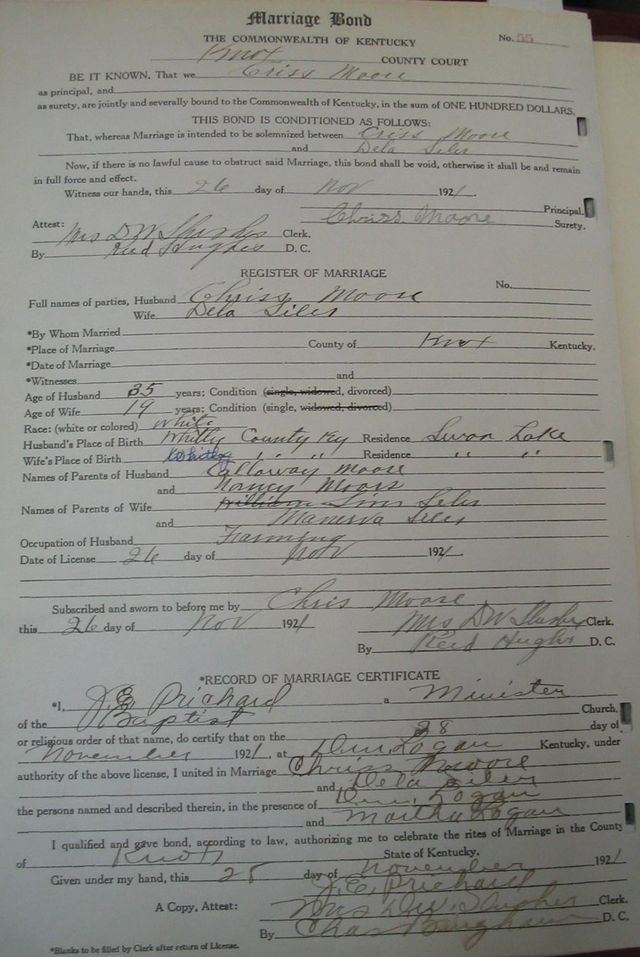 Marriage Bond
THE COMMONWEALTH OF KENTUCKY No. 55
Knox COUNTY COURT
BE IT KNOWN, That we Criss Moore
as principal, and
as surety, are jointly and severally bound to the Commonwealth of Kentucky, in the sum of ONE HUNDRED DOLLARS.
THIS BOND IS CONDITIONED AS FOLLOWS:
That, whereas Marriage is intended to be solemnized between Criss Moore
and Dela Siler
Now, if there is no lawful cause to obstruct said Marriage, this bond shall be void, otherwise it shall be and remain
in full force and effect.
Witness our hands, this 26 day of Nov 1921
Principal.
Chriss Moore Surety.
Attest: Mrs D W Slusher Clerk.
By Reid Hughes D. C.
REGISTER OF MARRIAGE
No.
Full names of parties, Husband Chriss Moore
Wife Dela Siler
*By Whom Married
*Place of Marriage County of Knox Kentucky.
*Date of Marriage
*Witnesses and
Age of Husband 35 years; Condition (single, widowed, divorced)
Age of Wife 19 years; Condition (single, widowed, divorced)
Race: (white or colored) White
Husband's Place of Birth Whitly County Ky Residence Swan Lake
Wife's Place of Birth Whitly " " " Residence " "
Names of Parents of Husband Calloway Moore
and Nancy Moore
Names of Parents of Wife William Siler
and Manerva Siler
Occupation of Husband Farming
Date of License 26 day of Nov 1921.
Subscribed and sworn to before me by Chris Moore
this 26 day of Nov 1921 Mrs D W Slusher Clerk.
By Reid Hughes D. C.
*RECORD OF MARRIAGE CERTIFICATE
*I, J. E. Prichard a Minister
of the Baptist Church,
or religious order of that name, do certify that on the 28 day of
November 1921, at Logan Kentucky, under
authority of the above license, I united in Marriage Chriss Moore
and Dela Siler
the persons named and described therein, in the presence of Logan
and Martha Logan
I qualified and gave bond, according to law, authorizing me to celebrate the rites of Marriage in the County
of Knox State of Kentucky.
Given under my hand, this 28 day of November 1921
J. E. Prichard
A Copy, Attest: Mrs D. W. Slusher Clerk.
By Chas Bingham D. C.
*Blanks to be filled by Clerk after return of License.